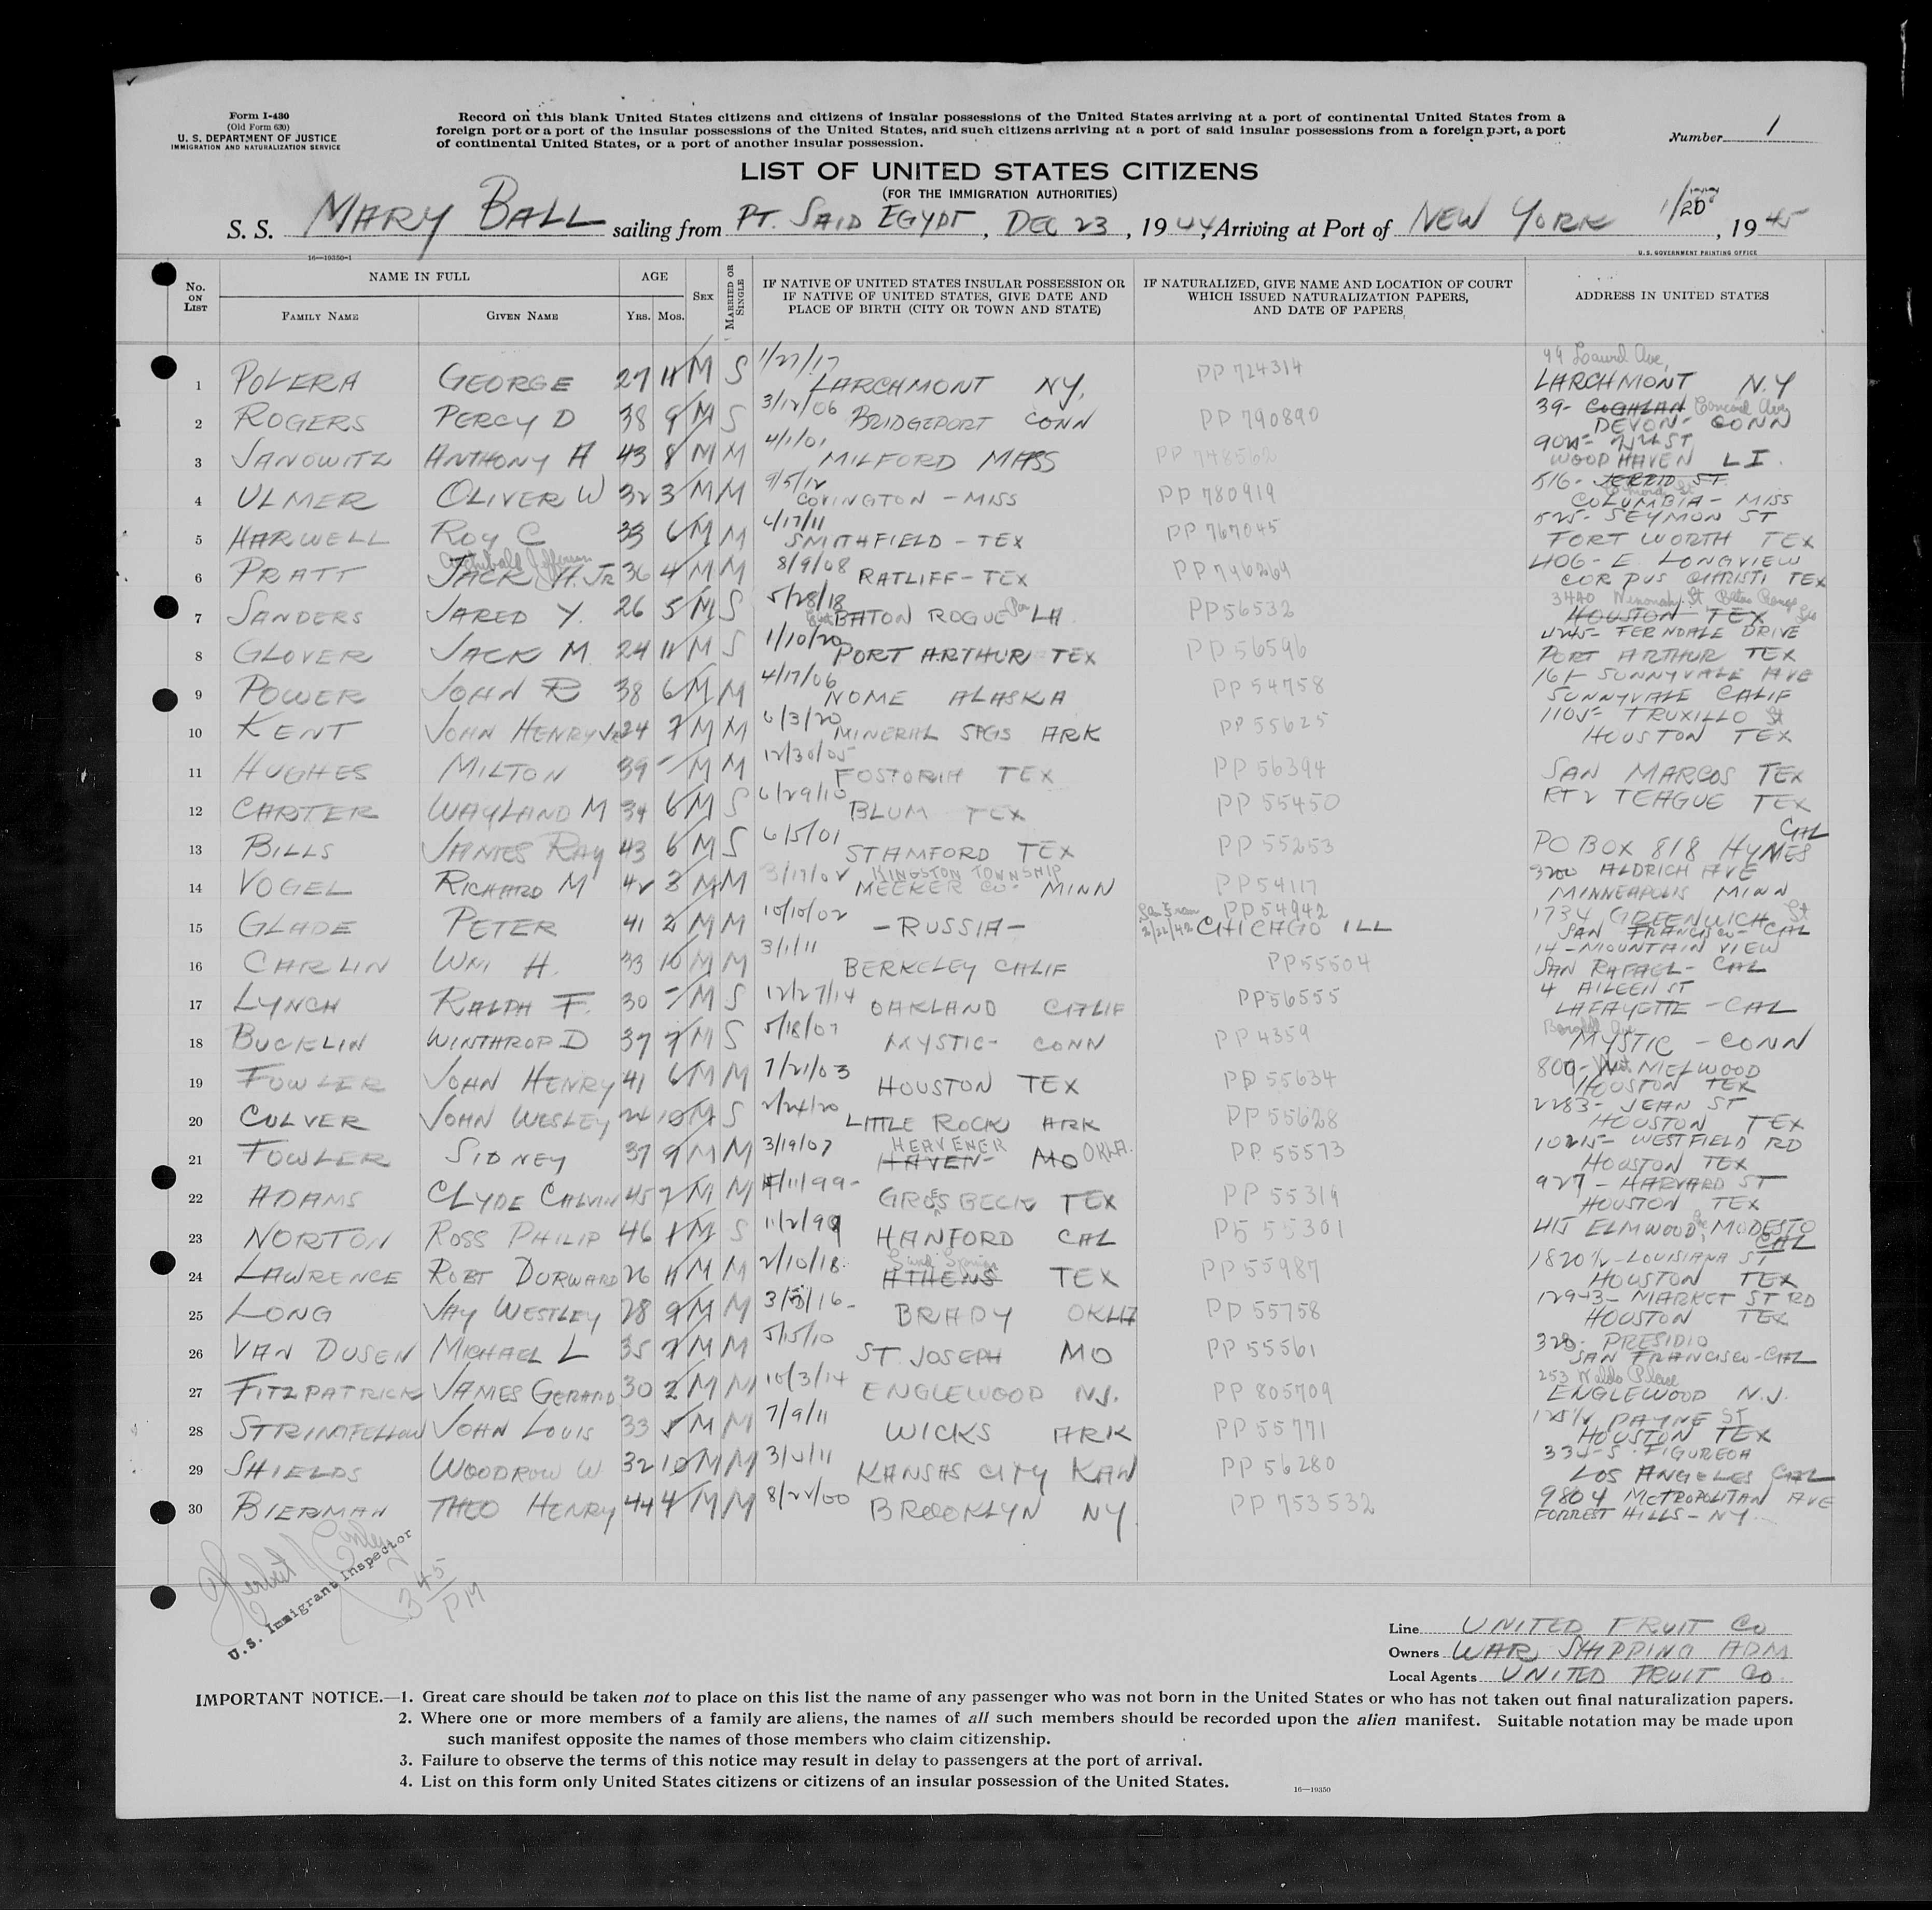 Form I-430
(Old Form 630)
U. S. DEPARTMENT OF JUSTICE
IMMIGRATION AND NATURALIZATION SERVICE
Record on this blank United States citizens and citizens of insular possessions of the United States arriving at a port of continental United States from a
foreign port or a port of the insular possessions of the United States, and such citizens arriving at a port of said insular possessions from a foreign port, a port
of continental United States, or a port of another insular possession.
Number 1
LIST OF UNITED STATES CITIZENS
(FOR THE IMMIGRATION AUTHORITIES)
S. S. MARY BALL sailing from PT. SAID EGYPT, DEC 23, 1944, Arriving at Port of NEW YORK 1/20, 1945
16—19350-1
U.S. GOVERNMENT PRINTING OFFICE
No. ON LIST
NAME IN FULL
FAMILY NAME GIVEN NAME
AGE
YRS. MOS.
SEX
MARRIED OR SINGLE
IF NATIVE OF UNITED STATES INSULAR POSSESSION OR
IF NATIVE OF UNITED STATES, GIVE DATE AND
PLACE OF BIRTH (CITY OR TOWN AND STATE)
IF NATURALIZED, GIVE NAME AND LOCATION OF COURT
WHICH ISSUED NATURALIZATION PAPERS,
AND DATE OF PAPERS
ADDRESS IN UNITED STATES
1 POLERA GEORGE 27 11 M S 1/27/17 LARCHMONT NY. PP 724314 44 Laurel Ave, LARCHMONT N.Y
2 ROGERS PERCY D 38 9 M S 3/12/06 BRIDGEPORT CONN PP 790890 39- COGHLAN Concord Ave DEVON- CONN
3 JANOWITZ ANTHONY A 43 8 M M 4/1/01 MILFORD MASS PP 748562 WOODHAVEN L I.
4 ULMER OLIVER W 32 3 M M 9/5/12 COVINGTON - MISS PP 780919 516- ST. COLUMBIA - MISS
5 HARWELL ROY C 33 6 M M 6/17/11 SMITHFIELD - TEX PP 767045 525- SEYMON ST FORT WORTH TEX
6 PRATT Archibald Jefferson JACK A. JR 36 4 M M 8/9/08 RATLIFF - TEX PP 746264 406- E. LONGVIEW CORPUS CHRISTI TEX
7 SANDERS JARED Y. 26 5 M S 5/28/18 BATON ROGUE LA. PP 56532 3440 St Baton Rouge HOUSTON - TEX
8 GLOVER JACK M. 24 11 M S 1/10/20 PORT ARTHUR TEX PP 56596 4245- FERNDALE DRIVE PORT ARTHUR TEX
9 POWER JOHN B 38 6 M M 4/17/06 NOME ALASKA PP 54758 SUNNYVALE AVE SUNNYVALE CALIF
10 KENT JOHN HENRY JR 24 7 M M 6/3/20 MINERAL SPGS ARK PP 55625 1105- TRUXILLO St HOUSTON TEX
11 HUGHES MILTON 39 - M M 12/30/05 FOSTORIA TEX PP 56394 SAN MARCOS TEX
12 CARTER WAYLAND M 34 6 M S 6/29/10 BLUM TEX PP 55450 RT 2 TEAGUE TEX
13 BILLS JAMES RAY 43 6 M S 6/5/01 STAMFORD TEX PP 55253 PO BOX 818 HYNES CAL
14 VOGEL RICHARD M 42 3 M M 3/17/02 KINGSTON TOWNSHIP MEEKER CO- MINN PP 54117 3200 ALDRICH AVE MINNEAPOLIS MINN
15 GLADE PETER 41 2 M M 10/10/02 - RUSSIA - San Fran PP 54942 2/22/42 CHICAGO ILL 1734 GREENWICH St SAN FRANCISCO - CAL
16 CARLIN WM H. 33 10 M M 3/1/11 BERKELEY CALIF PP 55504 14 - MOUNTAIN VIEW SAN RAFAEL - CAL
17 LYNCH RALPH F. 30 - M S 12/27/14 OAKLAND CALIF PP 56555 4 AILEEN ST LAFAYETTE - CAL
18 BUCKLIN WINTHROP D 37 7 M S 5/18/07 MYSTIC - CONN PP 4359 MYSTIC - CONN
19 FOWLER JOHN HENRY 41 6 M M 7/21/03 HOUSTON TEX PP 55634 800- West MELWOOD HOUSTON TEX
20 CULVER JOHN WESLEY 24 10 M S 2/24/20 LITTLE ROCK ARK PP 55628 2283- JEAN ST HOUSTON TEX
21 FOWLER SIDNEY 37 9 M M 3/19/07 HEAVENER HAVEN- MO OKLA. PP 55573 10215- WESTFIELD RD HOUSTON TEX
22 ADAMS CLYDE CALVIN 45 7 M M 11/99- GROESBECK TEX PP 55319 927 - HARVARD ST HOUSTON TEX
23 NORTON ROSS PHILIP 46 1 M S 11/2/99 HANFORD CAL PP 55301 415 ELMWOOD, MODESTO CAL
24 LAWRENCE ROBT DURWARD 26 11 M M 2/10/18. ATHENS TEX PP 55987 1820 1/2 - LOUISIANA ST HOUSTON TEX
25 LONG JAY WESTLEY 28 9 M M 3/ /16- BRADY OKLA PP 55758 MARKET ST RD HOUSTON TEX
26 VAN DUSEN MICHAEL L 35 7 M M 5/15/10 ST. JOSEPH MO PP 55561 328- PRESIDIO SAN FRANCISCO - CAL
27 FITZPATRICK JAMES GERARD 30 2 M M 10/3/14 ENGLEWOOD NJ. PP 805709 253 Waldo Place ENGLEWOOD N.J.
28 STRINGFELLOW JOHN LOUIS 33 5 M M 7/9/11 WICKS ARK PP 55771 125 1/2 PAYNE ST HOUSTON TEX
29 SHIELDS WOODROW W. 32 10 M M KANSAS CITY KAN PP 56280 335-S. FIGUREOA LOS ANGELES CAL
30 BIERMAN THEO HENRY 44 4 M M 8/22/00 BROOKLYN NY PP 753532 9804 METROPOLITAN AVE FORREST HILLS - NY
Herbert
U.S. Immigrant Inspector
3 45 PM
Line UNITED FRUIT Co
Owners WAR SHIPPING ADM
Local Agents UNITED FRUIT Co.
IMPORTANT NOTICE.—1. Great care should be taken not to place on this list the name of any passenger who was not born in the United States or who has not taken out final naturalization papers.
2. Where one or more members of a family are aliens, the names of all such members should be recorded upon the alien manifest. Suitable notation may be made upon
such manifest opposite the names of those members who claim citizenship.
3. Failure to observe the terms of this notice may result in delay to passengers at the port of arrival.
4. List on this form only United States citizens or citizens of an insular possession of the United States.
16—19350